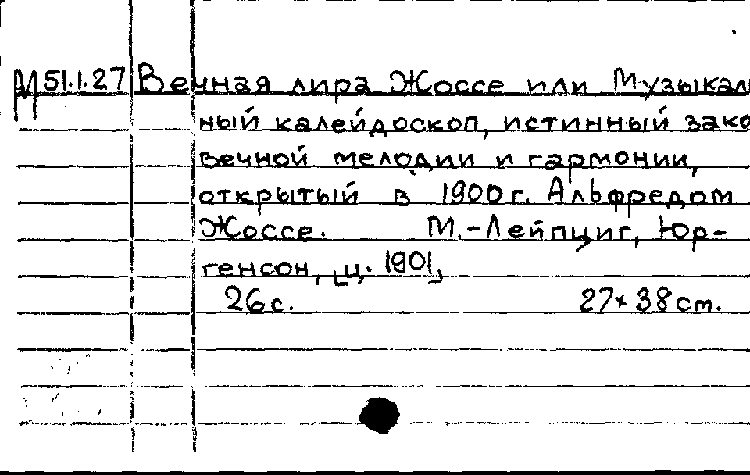 М51.1.27 Вечная лира Жоссе или Музыкал
ный калейдоскоп, истинный зако
вечной мелодии и гармонии,
открытый в 1900г. Альфредом
Жоссе. М.-Лейпциг, Юр-
генсон, ц. 1901,
26с. 27×38см.